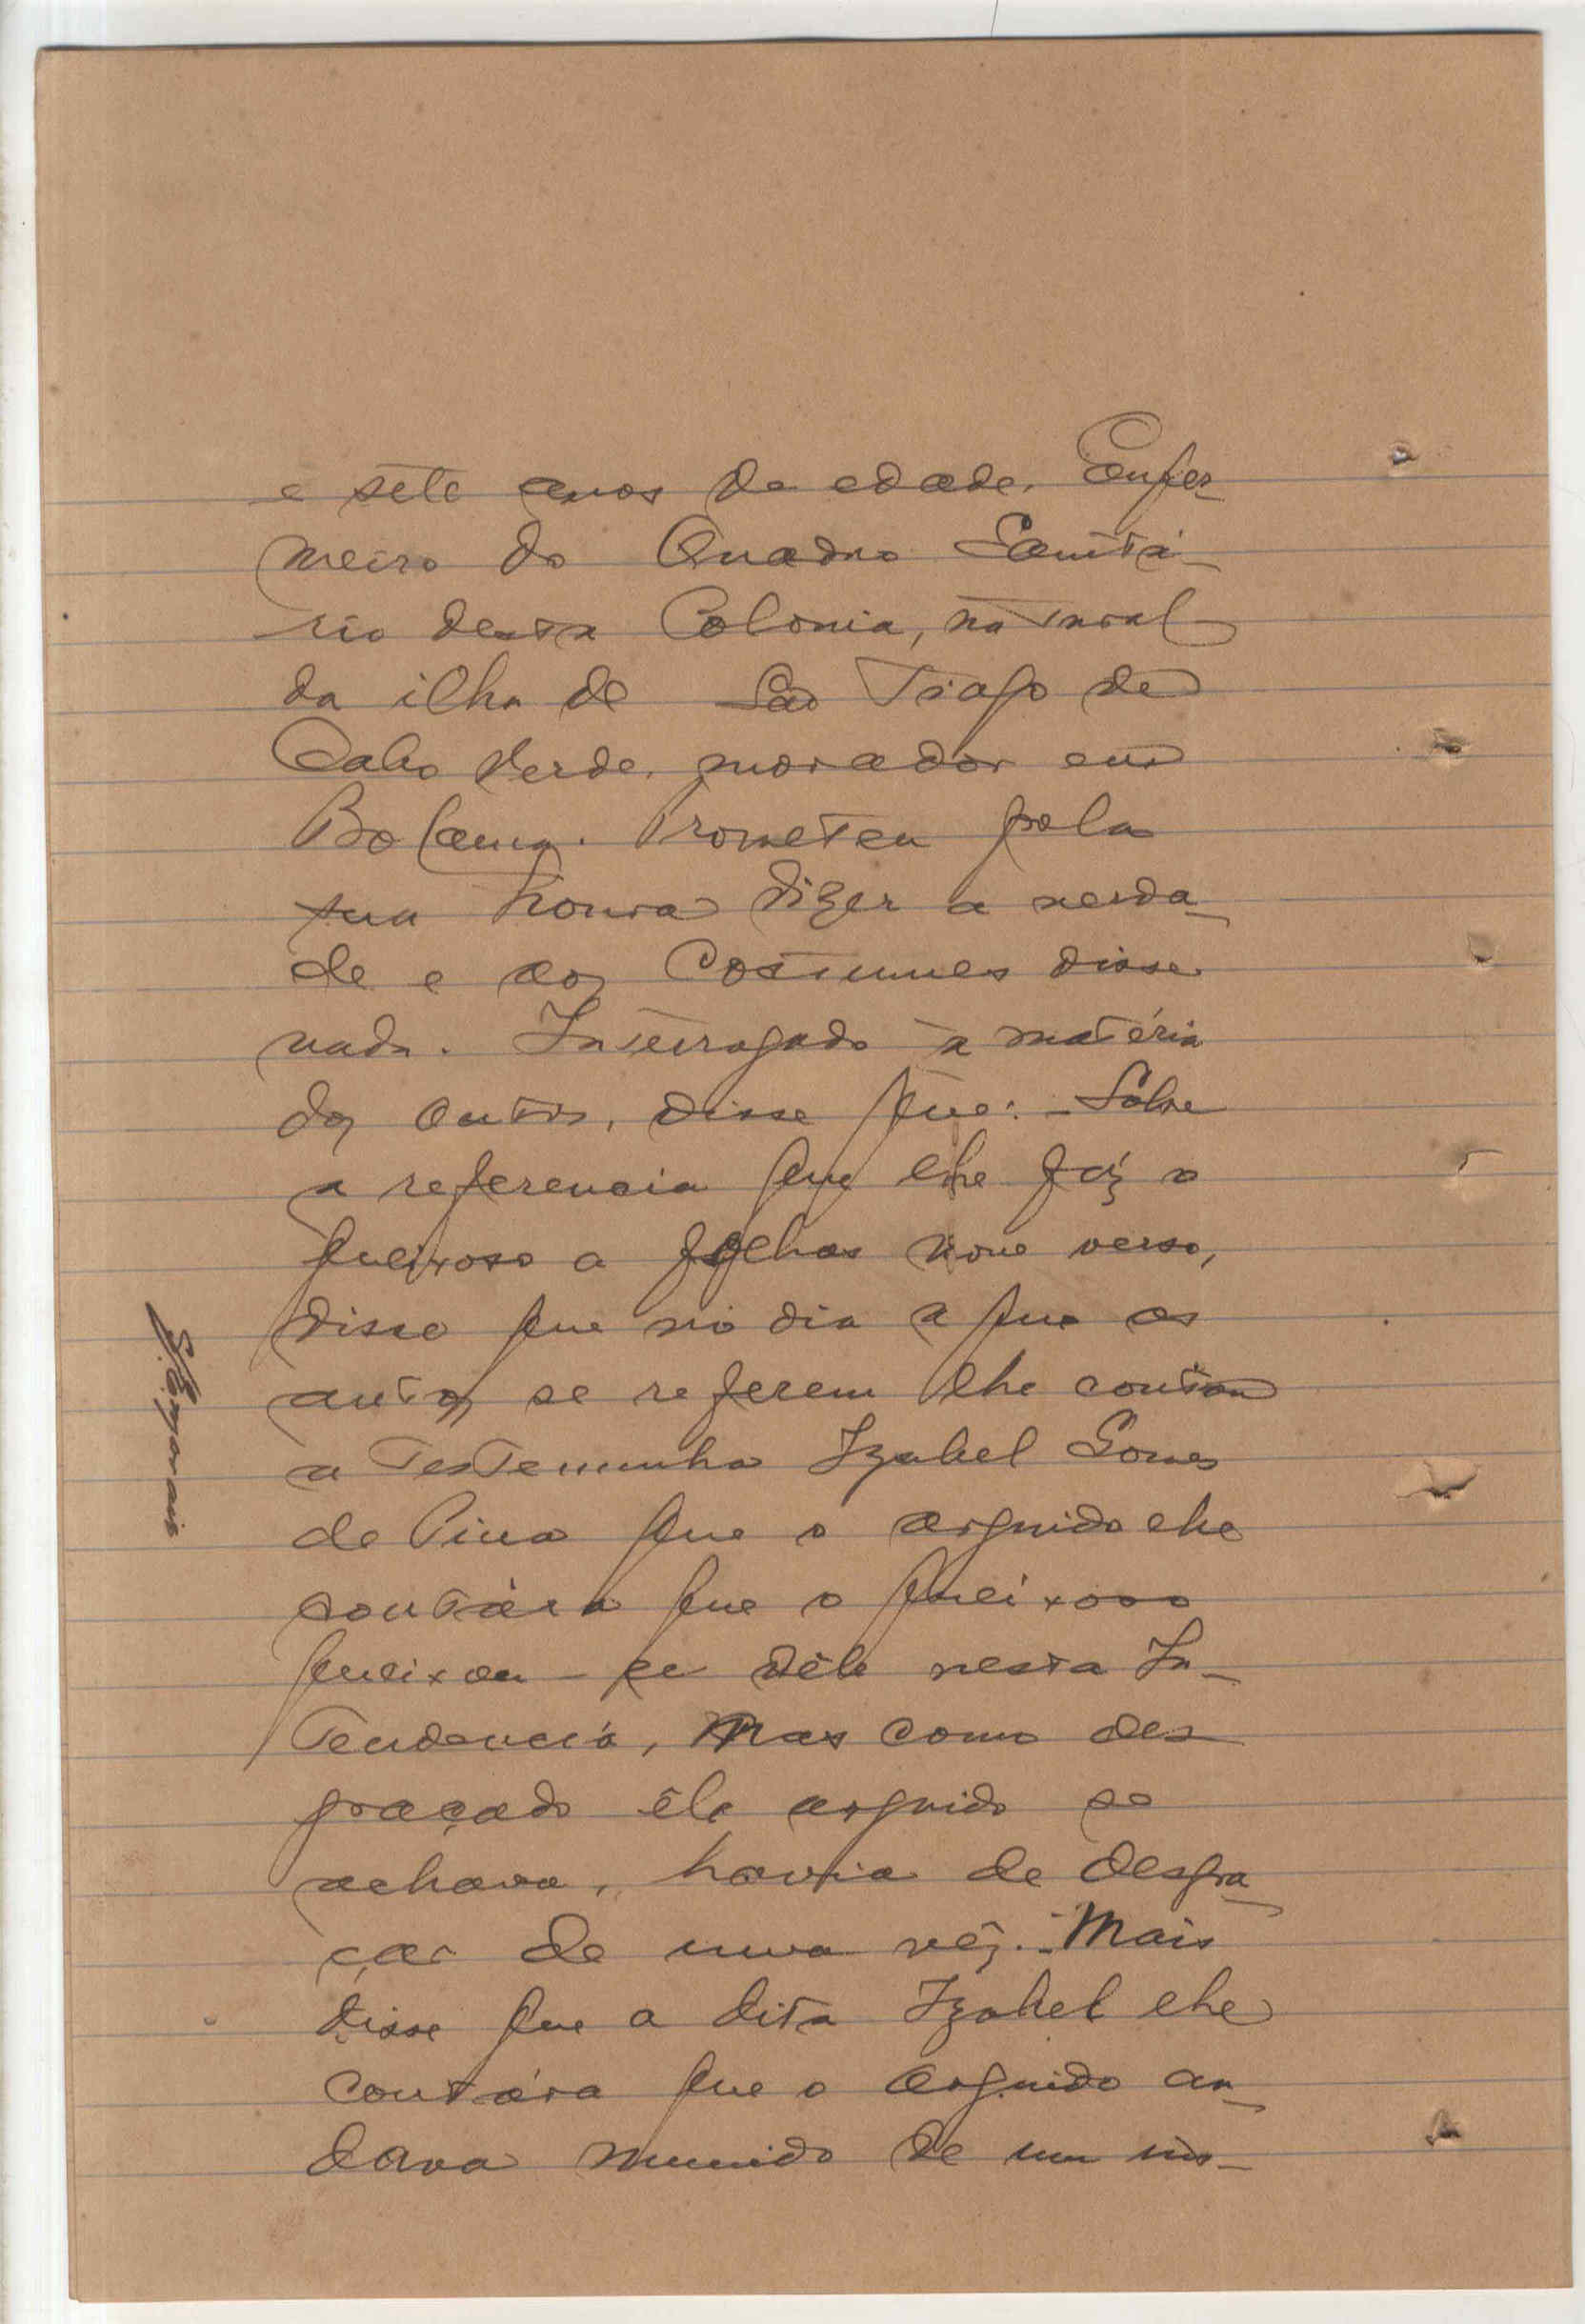 e sete anos de edade, Enfer-
meiro do Quadro Sanitá-
rio desta Colonia, natural
da ilha de São Tiago de
Cabo Verde, morador em
Bolama. Prometeu pela
sua honra dizer a verda-
de e aos costumes disse
nada. Interrogado à matéria
dos autos, disse que: - Sobre
a referencia que lhe faz o
queixoso a folhas nove verso,
disse que no dia a que os
autos se referem lhe contou
a testemunha Izabel Gomes
de Pina que o arguido lhe
contára que o queixoso
queixou-se dêle nesta In-
tendencia, mas como des
graçado êle arguido se
achava, havia de desgra-
çar de uma vêz. - Mais
disse que a dita Izabel lhe
contára que o arguido an-
dava munido de um